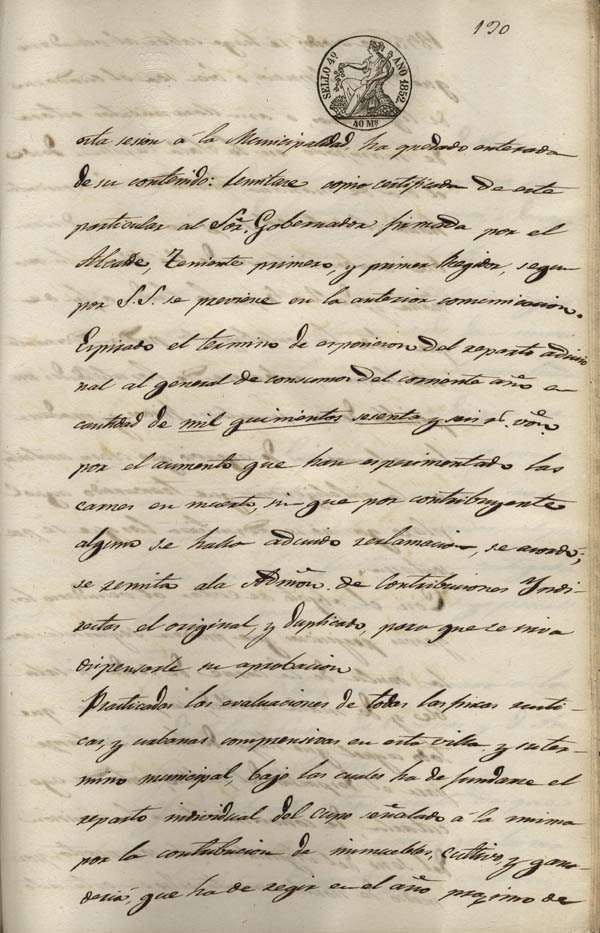 190
SELLO 4º AÑO 1852.
40 Ms
esta sesion á la Municipalidad ha quedado enterada
de su contenido: remitase copia certificada de este
particular al Sor. Gobernador firmada por el
Alcalde, Teniente primero, y primer Regidor, segun
por S.S. se previene en la anterior comunicacion.
Espirado el termino de esposicion del reparto adicio
nal al general de consumos del corriente año en
cantidad de mil quinientos sesenta y seis rs. von.
por el aumento que han esperimentado las
carnes en muerto, sin que por contribuyente
alguno se halla aducido reclamacion, se acordó;
se remita ala Admon. de Contribuciones Yndi-
rectas el original, y duplicado, para que se sirva
dispensarle su aprobacion
Practicadas las evaluaciones de todas las fincas rusti-
cas, y urbanas comprensivas en esta villa, y su ter-
mino municipal, bajo las cuales ha de fundarse el
reparto individual del cupo señalado á la misma
por la contribucion de inmuebles, cultivo, y gana-
deria, que ha de regir en el año proximo de